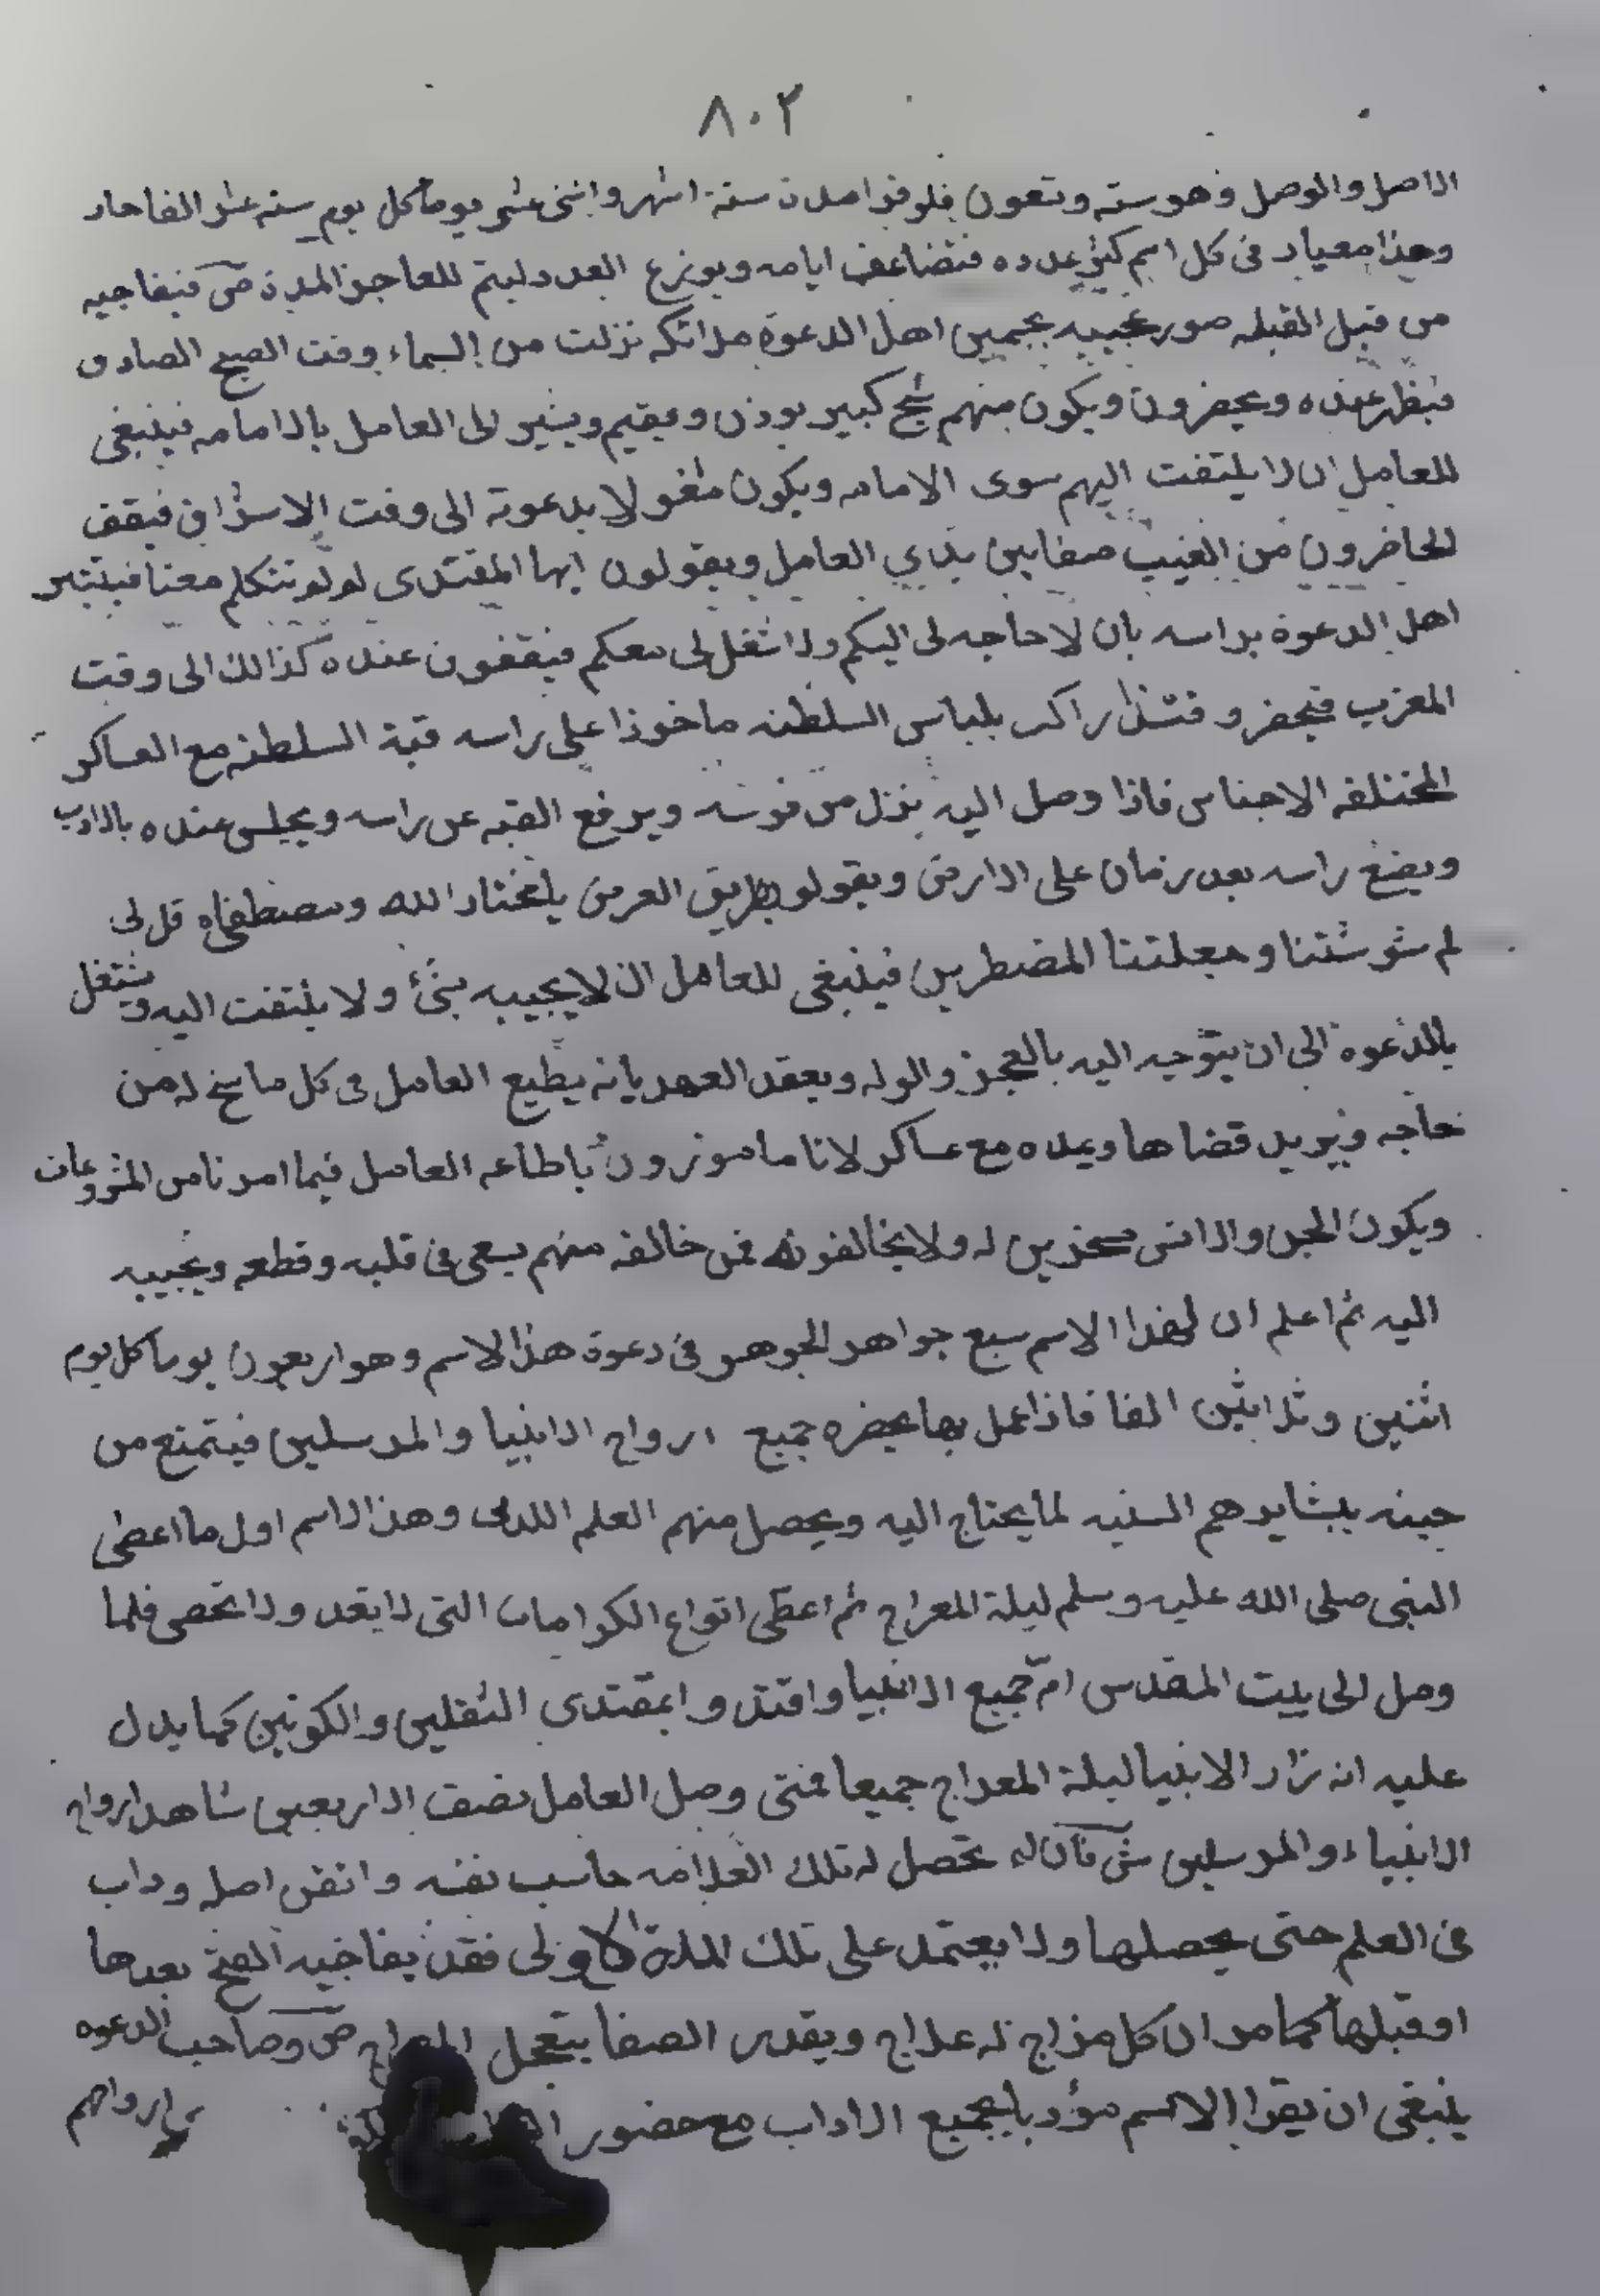 ٨٠٢
الاصل والوصل وهو ستة وتعون فلوفوا مدة ستة اشهر واثنى عشر يوما كل يوم ستة عشر الفا
وهذا معيار فى كل اسم كثر عدده فتضاعف ايامه ويوزع العدد ليتم للعاجز المدة فيفاجيه
من قبل القبله صور عجيبه بجميى اهل الدعوة ملائكه نزلت من السماء وقت الصبح الصادق
فيظهر عنده ويحضرون ويكون منهم شيخ كبير يوذن ويقيم ويشير الى العامل بالامامه فينبغى
للعامل ان لا يلتفت اليهم سوى الامامه ويكون مشغولا بدعوته الى وقت الاشراق فيقف
الحاضرون من الغيب صفا بين يدي العامل ويقولون ايها المقتدى لو لو تتكلم معنا فيشير
اهل الدعوة براسه بان لا حاجه لى اليكم ولا شغل لى معكم فيقفون عنده كذالك الى وقت
المغرب فيحضر راكب بلباس السلطنه ماخوذا على راسه قبة السلطنه مع العساكر
المختلفه الاجناس فاذا وصل اليه ينزل من فرسه ويرفع القبه عن راسه ويجلس عنده بالاداب
ويضع راسه بعد زمان على الارض ويقولو بطريق العرض يا مختار الله ومصطفاه قل لى
لم شوشتنا وجعلتنا المضطرين فينبغى للعامل ان لا يجيبه بشئ ولا يلتفت اليه ويشتغل
بالدعوة الى ان يتوجه اليه بالعجز والوله ويعقد العهد بانه يطيع العامل فى كل ما سنح له من
حاجه ويريد قضاها ويمده مع عساكر لانا مامورون باطاعه العامل فيما امرنا من المشروعات
ويكون الجن والانس مسخرين له ولا يخالفونه فمن خالفه منهم يسعى فى قلبه وقطعه ويجيبه
اليه ثم اعلم ان لهذا الاسم سبع جواهر الجوهر فى دعوة هذا الاسم وهو اربعون يوما كل يوم
اثنين وثلاثين الفا فاذا عمل بها يحضره جميع ارواح الانبيا والمرسلين فيتمتع من
حينه ببشايرهم السنيه لما يحتاج اليه ويحصل منهم العلم اللدنى وهذا الاسم اول ما اعطى
النبى صلى الله عليه وسلم ليلة المعراج ثم اعطى انواع الكرامات التى لا يعد ولا تحصى فلما
وصل الى بيت المقدس ام جميع الانبيا واقتدوا بمقتدى الثقلين والكونين كما يدل
عليه انه زار الانبيا ليلة المعراج جميعا فمتى وصل العامل نصف الاربعين شاهد ارواح
الانبياء والمرسلين فان لم تحصل له تلك العلامه حاسب نفسه واتقن اصله وداب
فى العلم حتى يحصلها ولا يعتمد على تلك المدة الاولى فقد يفاجيه الفتح بعدها
او قبلها كما مر ان كل مزاج له علاج وبقدر الصفا يتعجل وصاحب الدعوه
ينبغى ان يقرا الاسم مؤدبا بجميع الاداب مع حضور ارواحهم